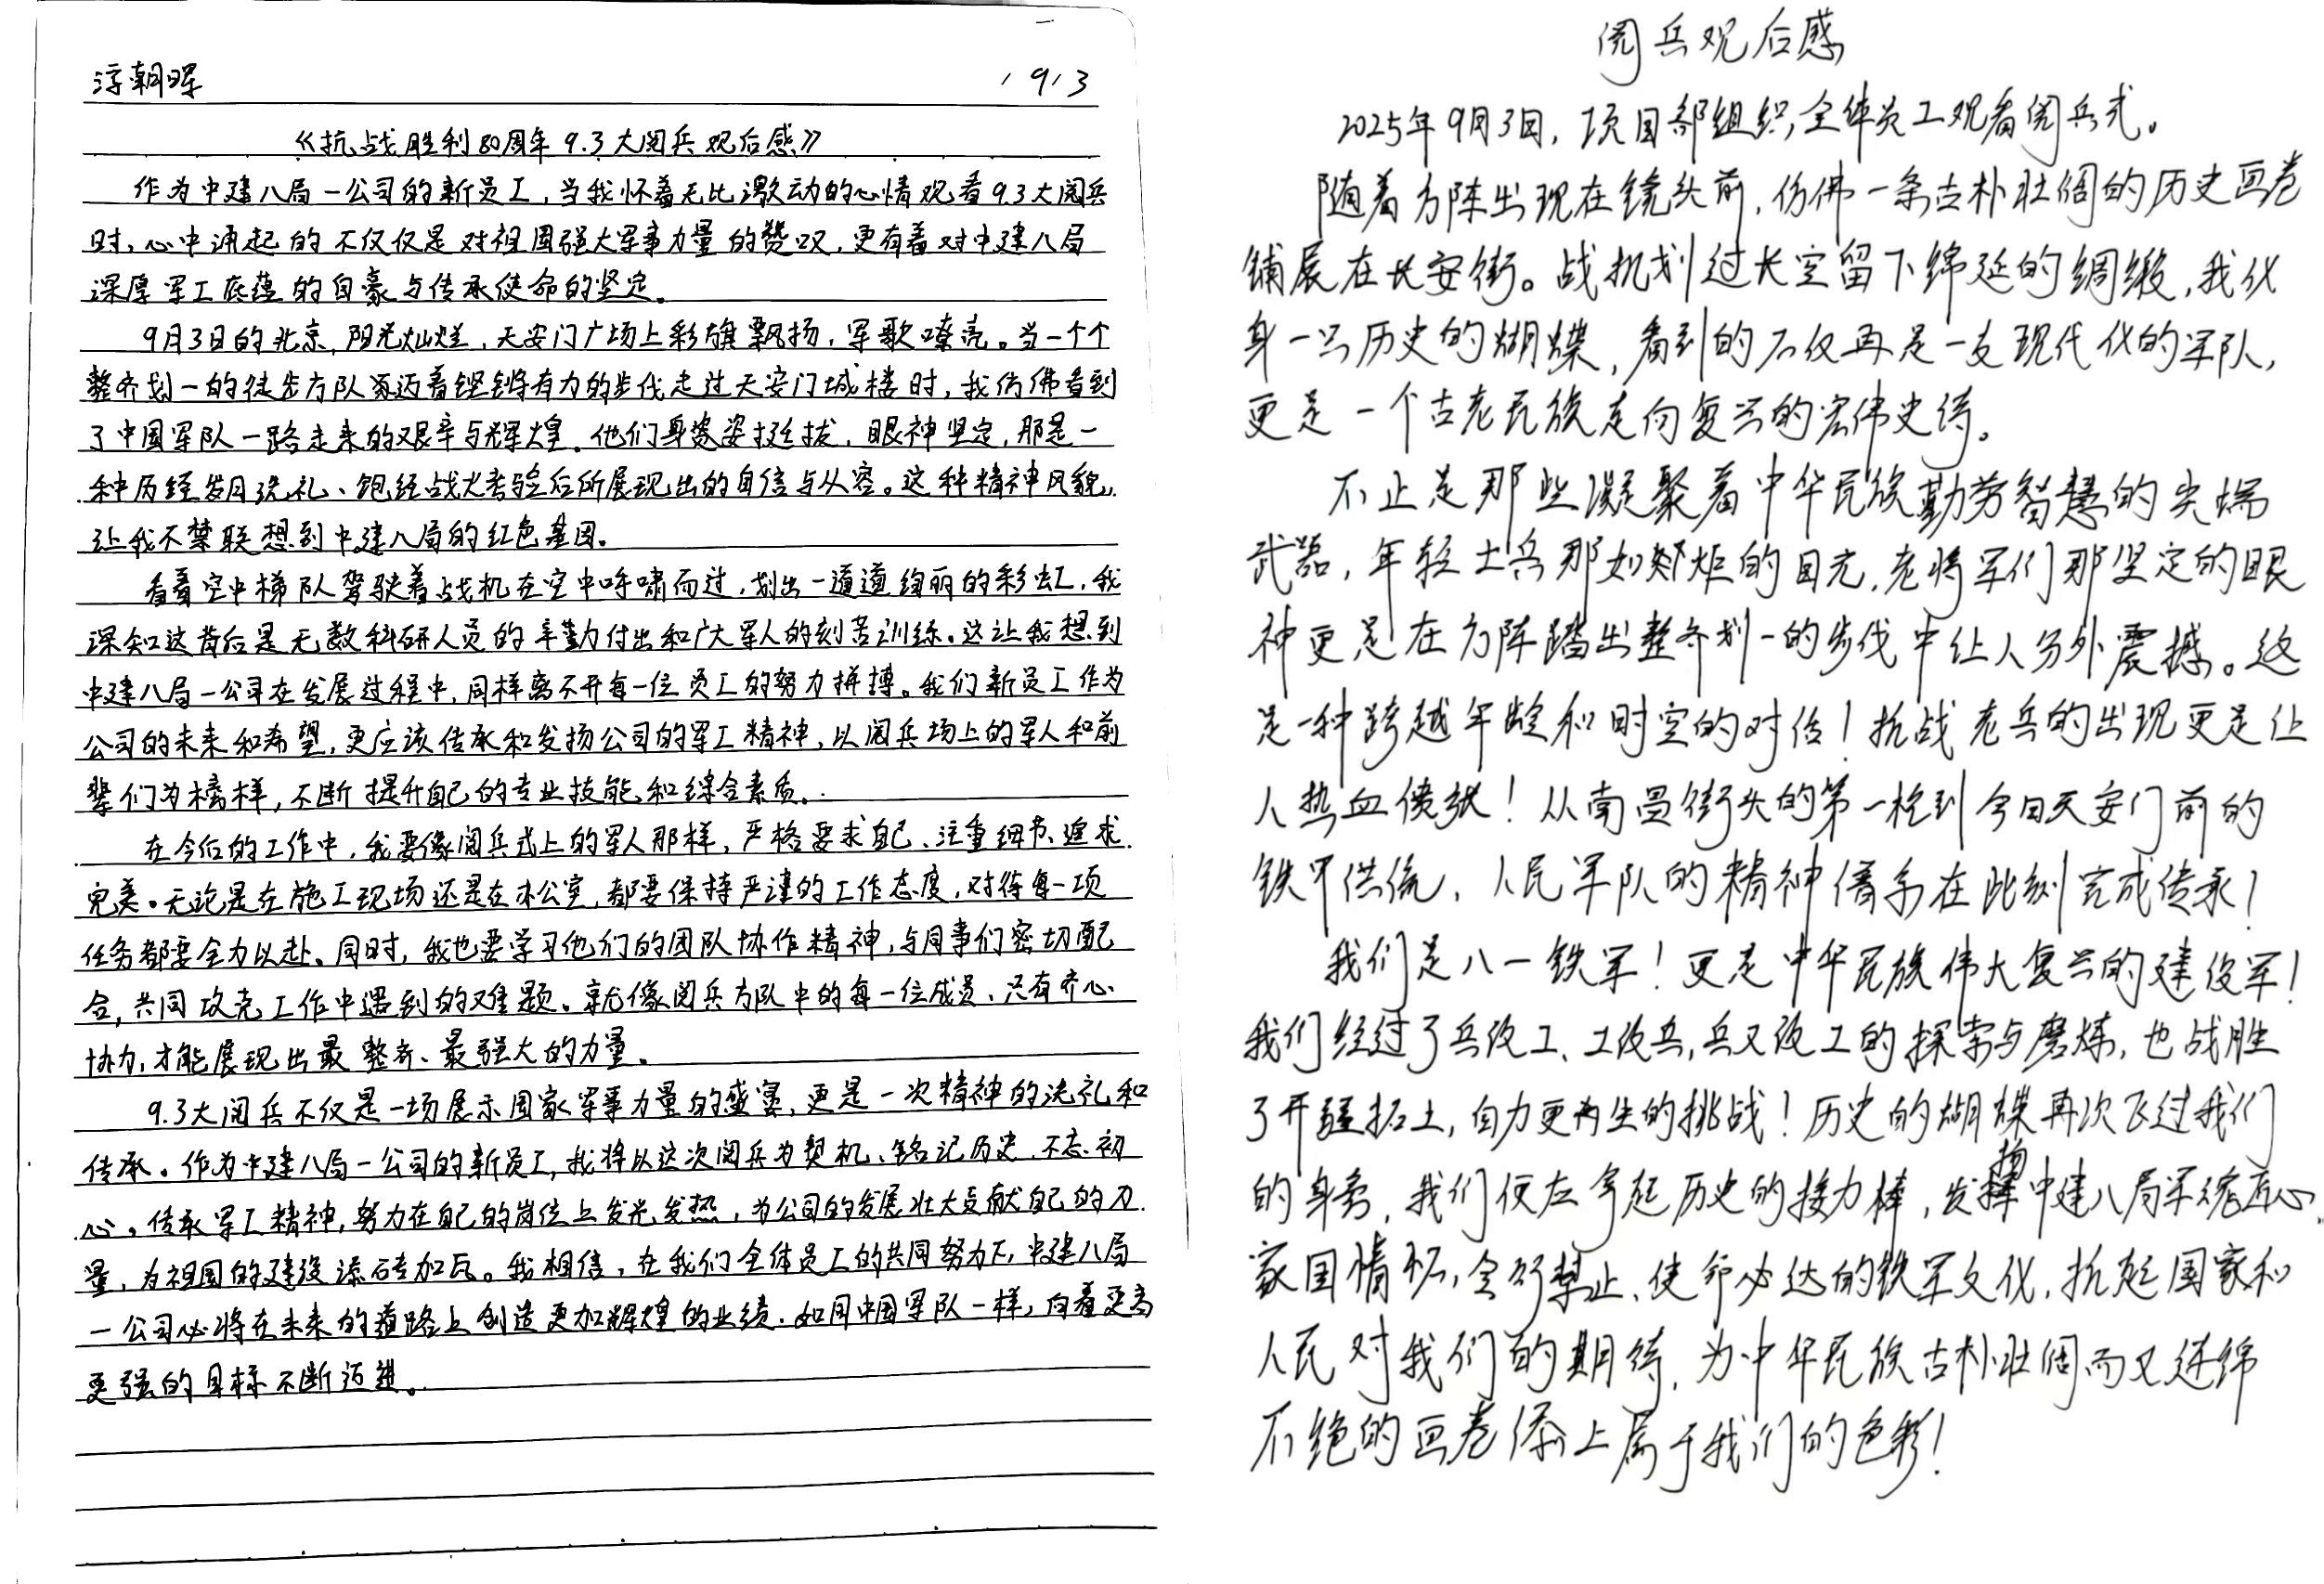 淳朝晖 1913
《抗战胜利80周年9.3大阅兵观后感》
作为中建八局一公司的新员工,当我怀着无比激动的心情观看9.3大阅兵
时,心中涌起的不仅仅是对祖国强大军事力量的赞叹,更有着对中建八局
深厚军工底蕴的自豪与传承使命的坚定。
9月3日的北京,阳光灿烂,天安门广场上彩旗飘扬,军歌嘹亮。当一个个
整齐划一的徒步方队迈着铿锵有力的步伐走过天安门城楼时,我仿佛看到
了中国军队一路走来的艰辛与辉煌。他们身姿挺拔,眼神坚定,那是一
种历经岁月洗礼、饱经战火考验后所展现出的自信与从容。这种精神风貌,
让我不禁联想到中建八局的红色基因。
看着空中梯队驾驶着战机在空中呼啸而过,划出一道道绚丽的彩虹,我
深知这背后是无数科研人员的辛勤付出和广大军人的刻苦训练。这让我想到
中建八局一公司在发展过程中,同样离不开每一位员工的努力拼搏。我们新员工作为
公司的未来和希望,更应该传承和发扬公司的军工精神,以阅兵场上的军人和前
辈们为榜样,不断提升自己的专业技能和综合素质。
在今后的工作中,我要像阅兵式上的军人那样,严格要求自己、注重细节、追求
完美。无论是在施工现场还是在办公室,都要保持严谨的工作态度,对待每一项
任务都要全力以赴。同时,我也要学习他们的团队协作精神,与同事们密切配
合,共同攻克工作中遇到的难题。就像阅兵方队中的每一位成员、只有齐心
协力,才能展现出最整齐、最强大的力量。
9.3大阅兵不仅是一场展示国家军事力量的盛宴,更是一次精神的洗礼和
传承。作为中建八局一公司的新员工,我将以这次阅兵为契机、铭记历史、不忘初
心。传承军工精神,努力在自己的岗位上发光发热,为公司的发展壮大贡献自己的力
量,为祖国的建设添砖加瓦。我相信,在我们全体员工的共同努力下,中建八局
一公司必将在未来的道路上创造更加辉煌的业绩.如同中国军队一样,向着更高
更强的目标不断迈进。
阅兵观后感
2025年9月3日,项目部组织全体员工观看阅兵式。
随着方阵出现在镜头前,仿佛一条古朴壮阔的历史画卷
铺展在长安街。战机划过长空留下绵延的绸缎,我化
身一只历史的蝴蝶,看到的不仅再是一支现代化的军队,
更是一个古老民族走向复兴的宏伟史诗。
不止是那些凝聚着中华民族勤劳智慧的尖端
武器,年轻士兵那如炬的目光,老将军们那坚定的眼
神更是在方阵踏出整齐划一的步伐中让人分外震撼。这
是一种跨越年龄和时空的对话!抗战老兵的出现更是让
人热血偾张!从南昌街头的第一枪到今日天安门前的
铁甲洪流,人民军队的精神谱系在此刻完成传承!
我们是八一铁军!更是中华民族伟大复兴的建设军!
我们经过了兵改工、工改兵,兵又改工的探索与磨炼,也战胜
了开疆拓土,自力更生的挑战!历史的蝴蝶再次飞过我们
的身旁,我们便应拿起历史的接力棒,发扬中建八局军魂匠心、
家国情怀,令行禁止、使命必达的铁军文化,抗起国家和
人民对我们的期待,为中华民族古朴壮阔而又连绵
不绝的画卷添上属于我们的色彩!